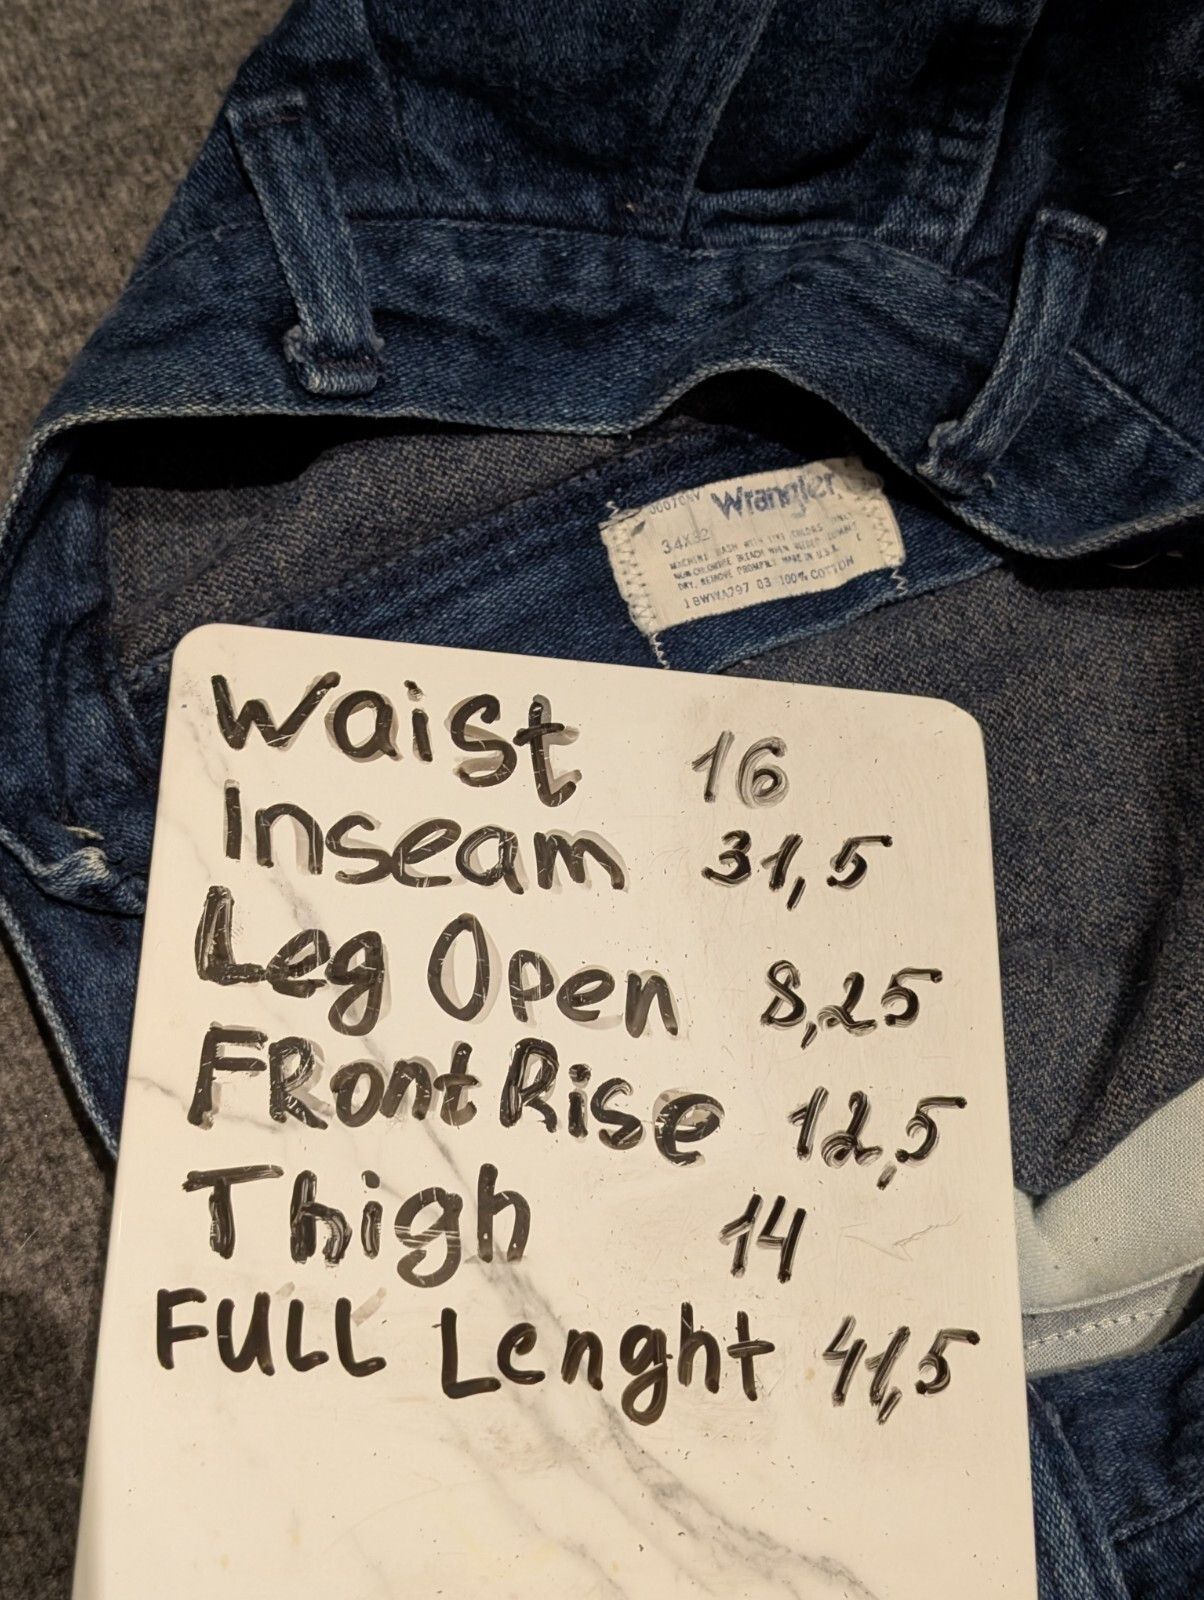 Wrangler
34X32
MACHINE WASH WITH LIKE COLORS ONLY
NON-CHLORINE BLEACH WHEN NEEDED TUMBLE
DRY, REMOVE PROMPTLY MADE IN U.S.A.
1BWWA797 03 100% COTTON
Waist 16
Inseam 31,5
Leg Open 8,25
FRont Rise 12,5
Thigh 14
FULL Lenght 41,5